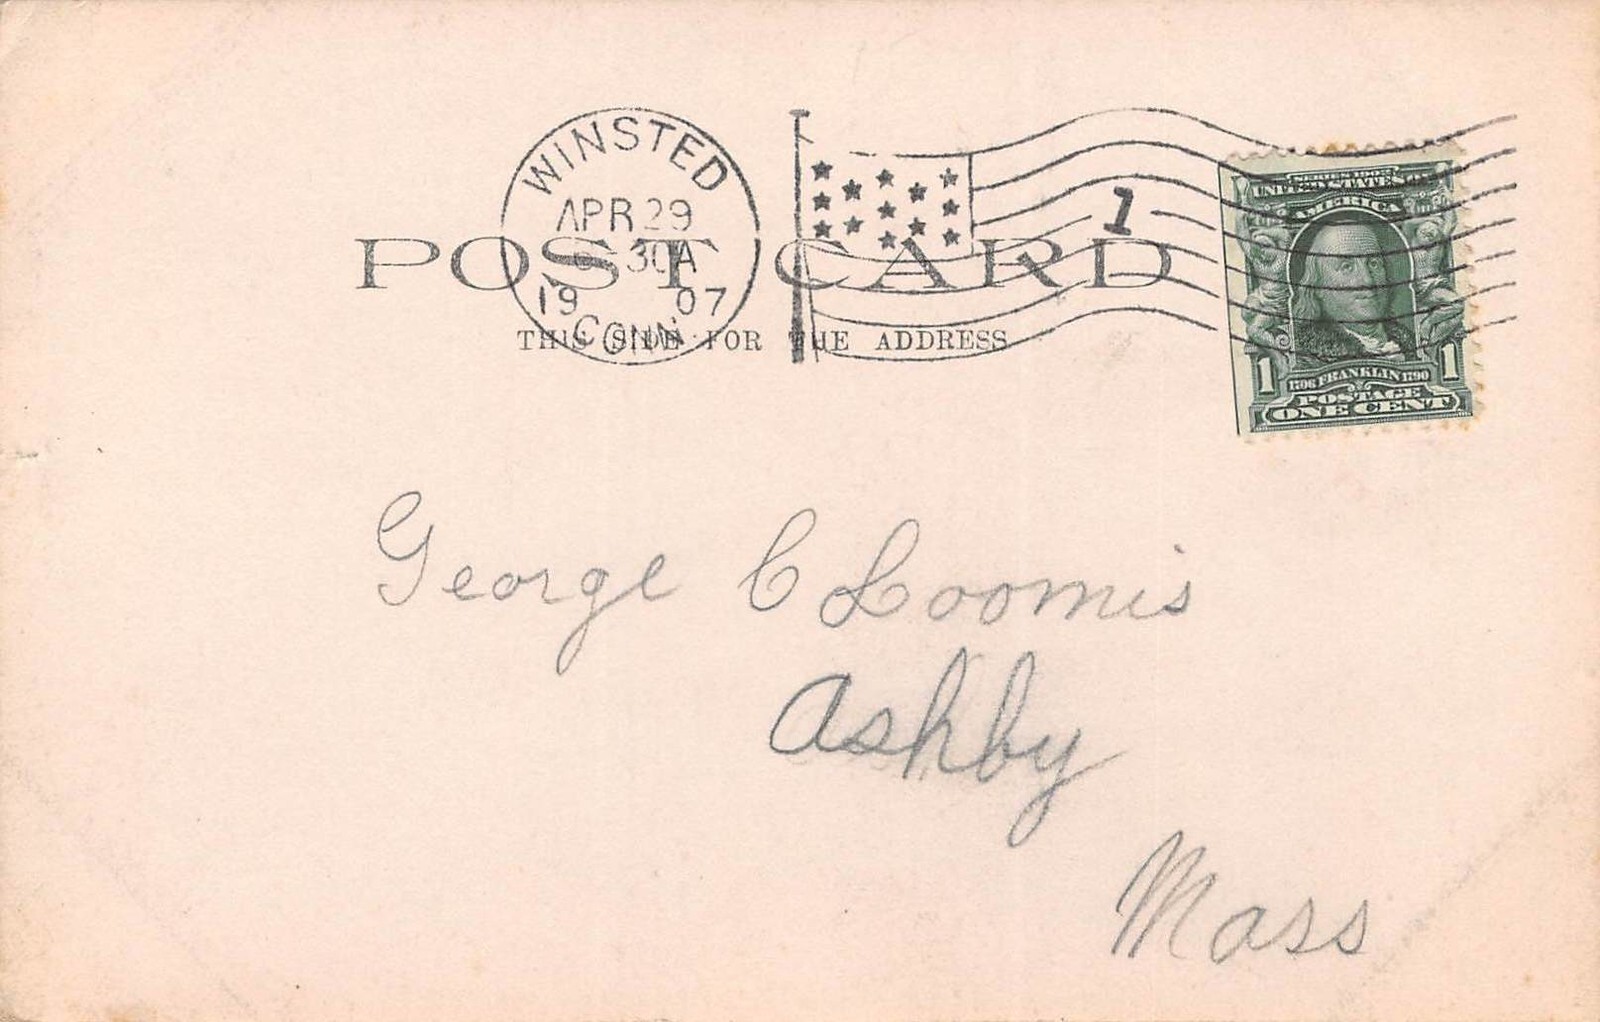 WINSTED
APR 29
30 A
19 07
CONN
1
POST CARD
THIS SIDE FOR THE ADDRESS
SERIES 1902
UNITED STATES OF
AMERICA
1 1706 FRANKLIN 1790 1
POSTAGE
ONE CENT
George C Loomis
Ashby
Mass